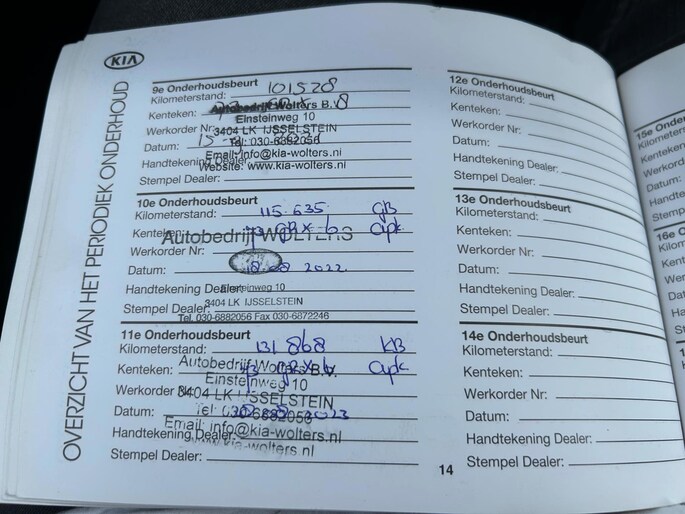 KIA
OVERZICHT VAN HET PERIODIEK ONDERHOUD
9e Onderhoudsbeurt
Kilometerstand: 101528
Kenteken:
Autobedrijf Wolters B.V.
Einsteinweg 10
Werkorder Nr:
3404 LK IJSSELSTEIN
Datum: 15
Tel: 030-6882056
Email: info@kia-wolters.nl
Handtekening Dealer:
Website: www.kia-wolters.nl
Stempel Dealer:
10e Onderhoudsbeurt
Kilometerstand: 115.635 GB
Kenteken: apk
Autobedrijf WOLTERS
Werkorder Nr:
Datum: 18.08 2022
Handtekening Dealer:
Einsteinweg 10
3404 LK IJSSELSTEIN
Stempel Dealer:
Tel. 030-6882056 Fax 030-6872246
11e Onderhoudsbeurt
Kilometerstand: 131 868 KB
Kenteken: apk
Autobedrijf Wolters B.V.
Einsteinweg 10
Werkorder Nr:
3404 LK IJSSELSTEIN
Datum: 2023
Tel: 030-6882056
Email: info@kia-wolters.nl
Handtekening Dealer:
www.kia-wolters.nl
Stempel Dealer:
12e Onderhoudsbeurt
Kilometerstand:
Kenteken:
Werkorder Nr:
Datum:
Handtekening Dealer:
Stempel Dealer:
13e Onderhoudsbeurt
Kilometerstand:
Kenteken:
Werkorder Nr:
Datum:
Handtekening Dealer:
Stempel Dealer:
14e Onderhoudsbeurt
Kilometerstand:
Kenteken:
Werkorder Nr:
Datum:
Handtekening Dealer:
Stempel Dealer:
14
15e Onder
Kilometer
Kenteken
Werkord
Datum:
Handte
Stemp
16e O
Kilom
Kent
We
Da